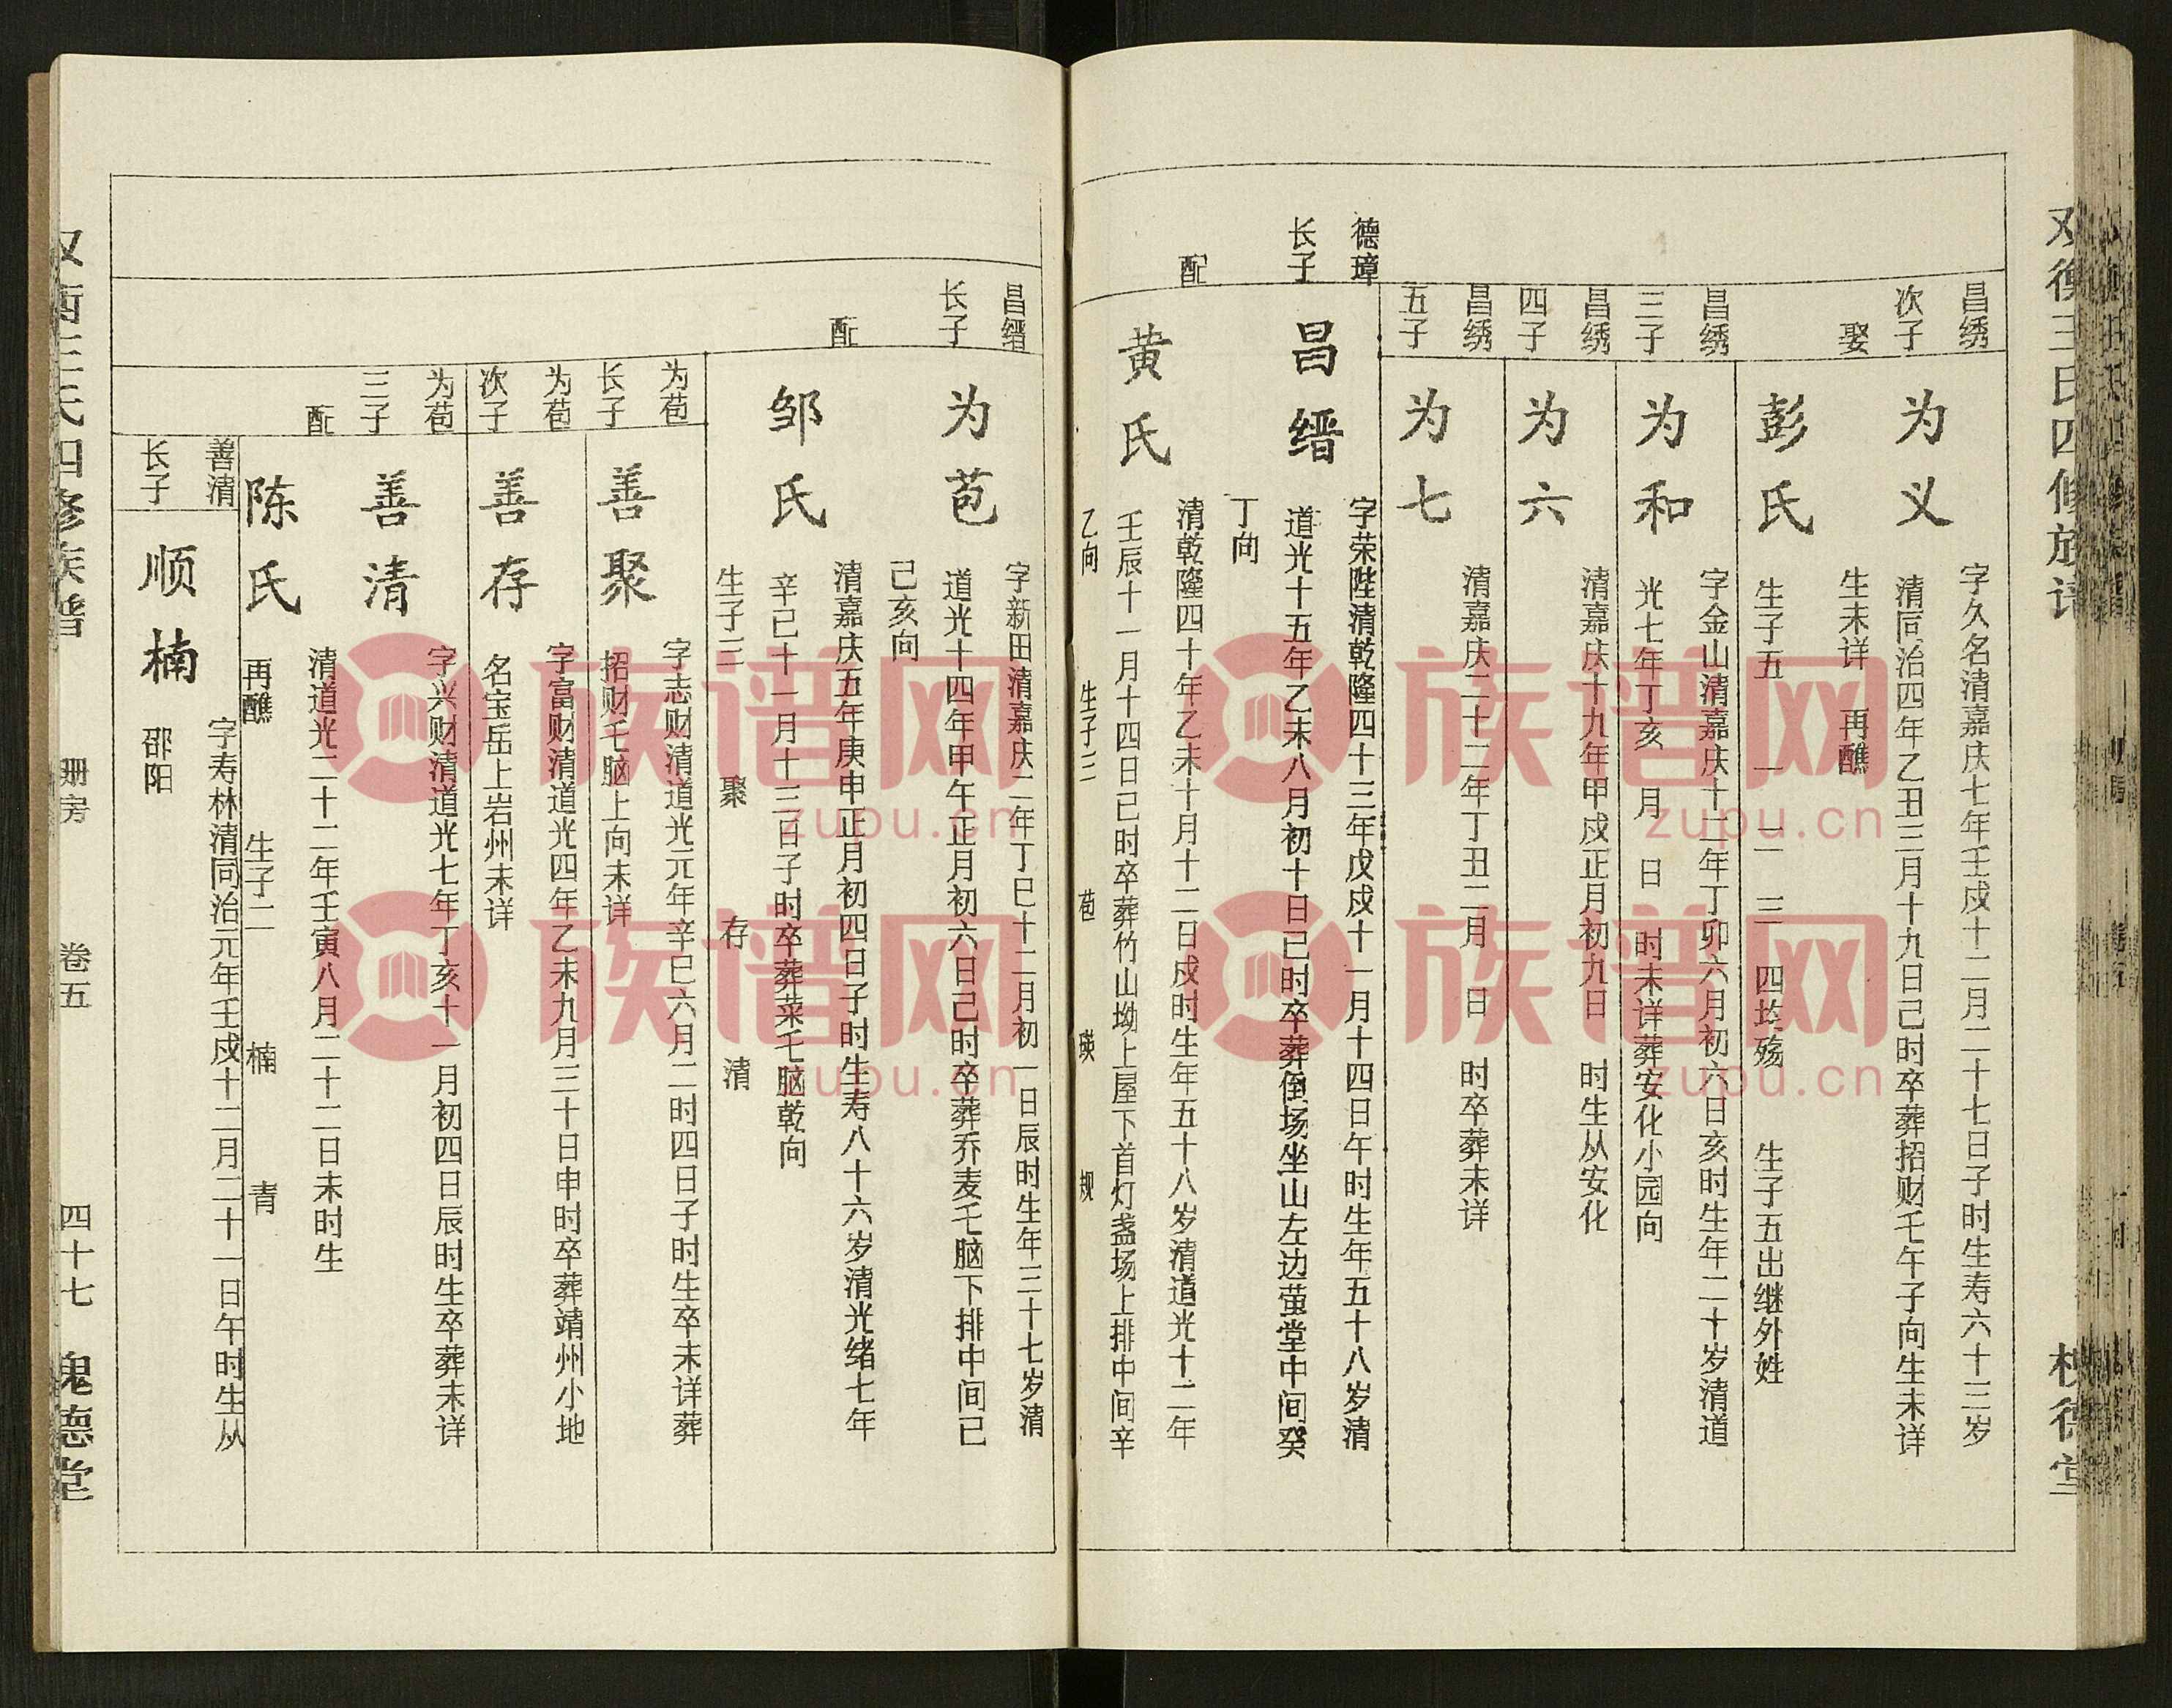 双衡王氏四修族谱
槐德堂
昌绣
次子
为义
字久名清嘉庆七年壬戍十二月二十七日子时生寿六十三岁
清同治四年乙丑三月十九日己时卒葬招财乇午子向生未详
娶
生未详 再醮
彭氏
生子五 一 二 三 四均殇 生子五出继外姓
昌绣
三子
为和
字金山清嘉庆十二年丁卯六月初六日亥时生年二十岁清道
光七年丁亥 月 日 时未详葬安化小园向
昌绣
四子
为六
清嘉庆十九年甲戍正月初九日 时生从安化
昌绣
五子
为七
清嘉庆二十二年丁丑二月 日 时卒葬未详
德璋
长子
昌缙
字荣陛清乾隆四十三年戊戍十一月十四日午时生年五十八岁清
道光十五年乙未八月初十日己时卒葬倒场坐山左边萤堂中间癸
丁向
配
黄氏
清乾隆四十年乙未十月十二日戍时生年五十八岁清道光十二年
壬辰十一月十四日已时卒葬竹山坳上屋下首灯盏场上排中间辛
乙向 生子三 苞 瑛 规
昌缙
长子
为苞
字新田清嘉庆二年丁巳十二月初一日辰时生年三十七岁清
道光十四年甲午正月初六日己时卒葬乔麦乇脑下排中间已
己亥向
配
邹氏
清嘉庆五年庚申正月初四日子时生寿八十六岁清光绪七年
辛已十一月十三日子时卒葬菜乇脑乾向
生子三 聚 存 清
为苞
长子
善聚
字志财清道光元年辛巳六月二时四日子时生卒未详葬
招财乇脑上向未详
为苞
次子
善存
字富财清道光四年乙未九月三十日申时卒葬靖州小地
名宝岳上岩州未详
为苞
三子
善清
字兴财清道光七年丁亥十一月初四日辰时生卒葬未详
配
清道光二十二年壬寅八月二十二日未时生
陈氏
再醮 生子二 楠 青
善清
长子
顺楠
字寿林清同治元年壬戍十二月二十一日午时生从
邵阳
双衡王氏四修族谱 珊房 卷五 四十七 槐德堂
族谱网
zupu.cn
族谱网
zupu.cn
族谱网
zupu.cn
族谱网
zupu.cn